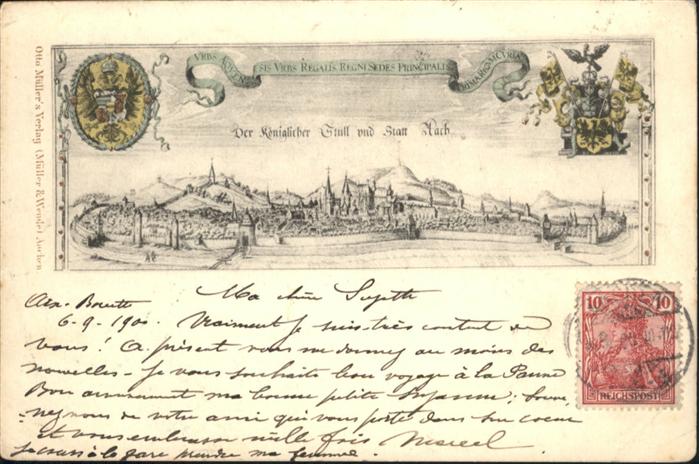 Otto Müller's Verlag (Müller & Wende) Aachen.
VRBS AQVEN
SIS VRBS REGALIS REGNI SEDES PRINCIPALIS
Der Königlicher Stull vnd Statt Aach
10 10
REICHSPOST
Ma chère
6-9-1900 Vraiment je suis très content de
vous! A présent vous me donnez au moins des
nouvelles - Je vous souhaite bon voyage à la Panne
Bon amusement ma bonne petite Suzanne; Souve
nez vous de votre ami qui vous porte dans son coeur
et vous embrasse mille fois Marcel
la gare prendre ma femme.